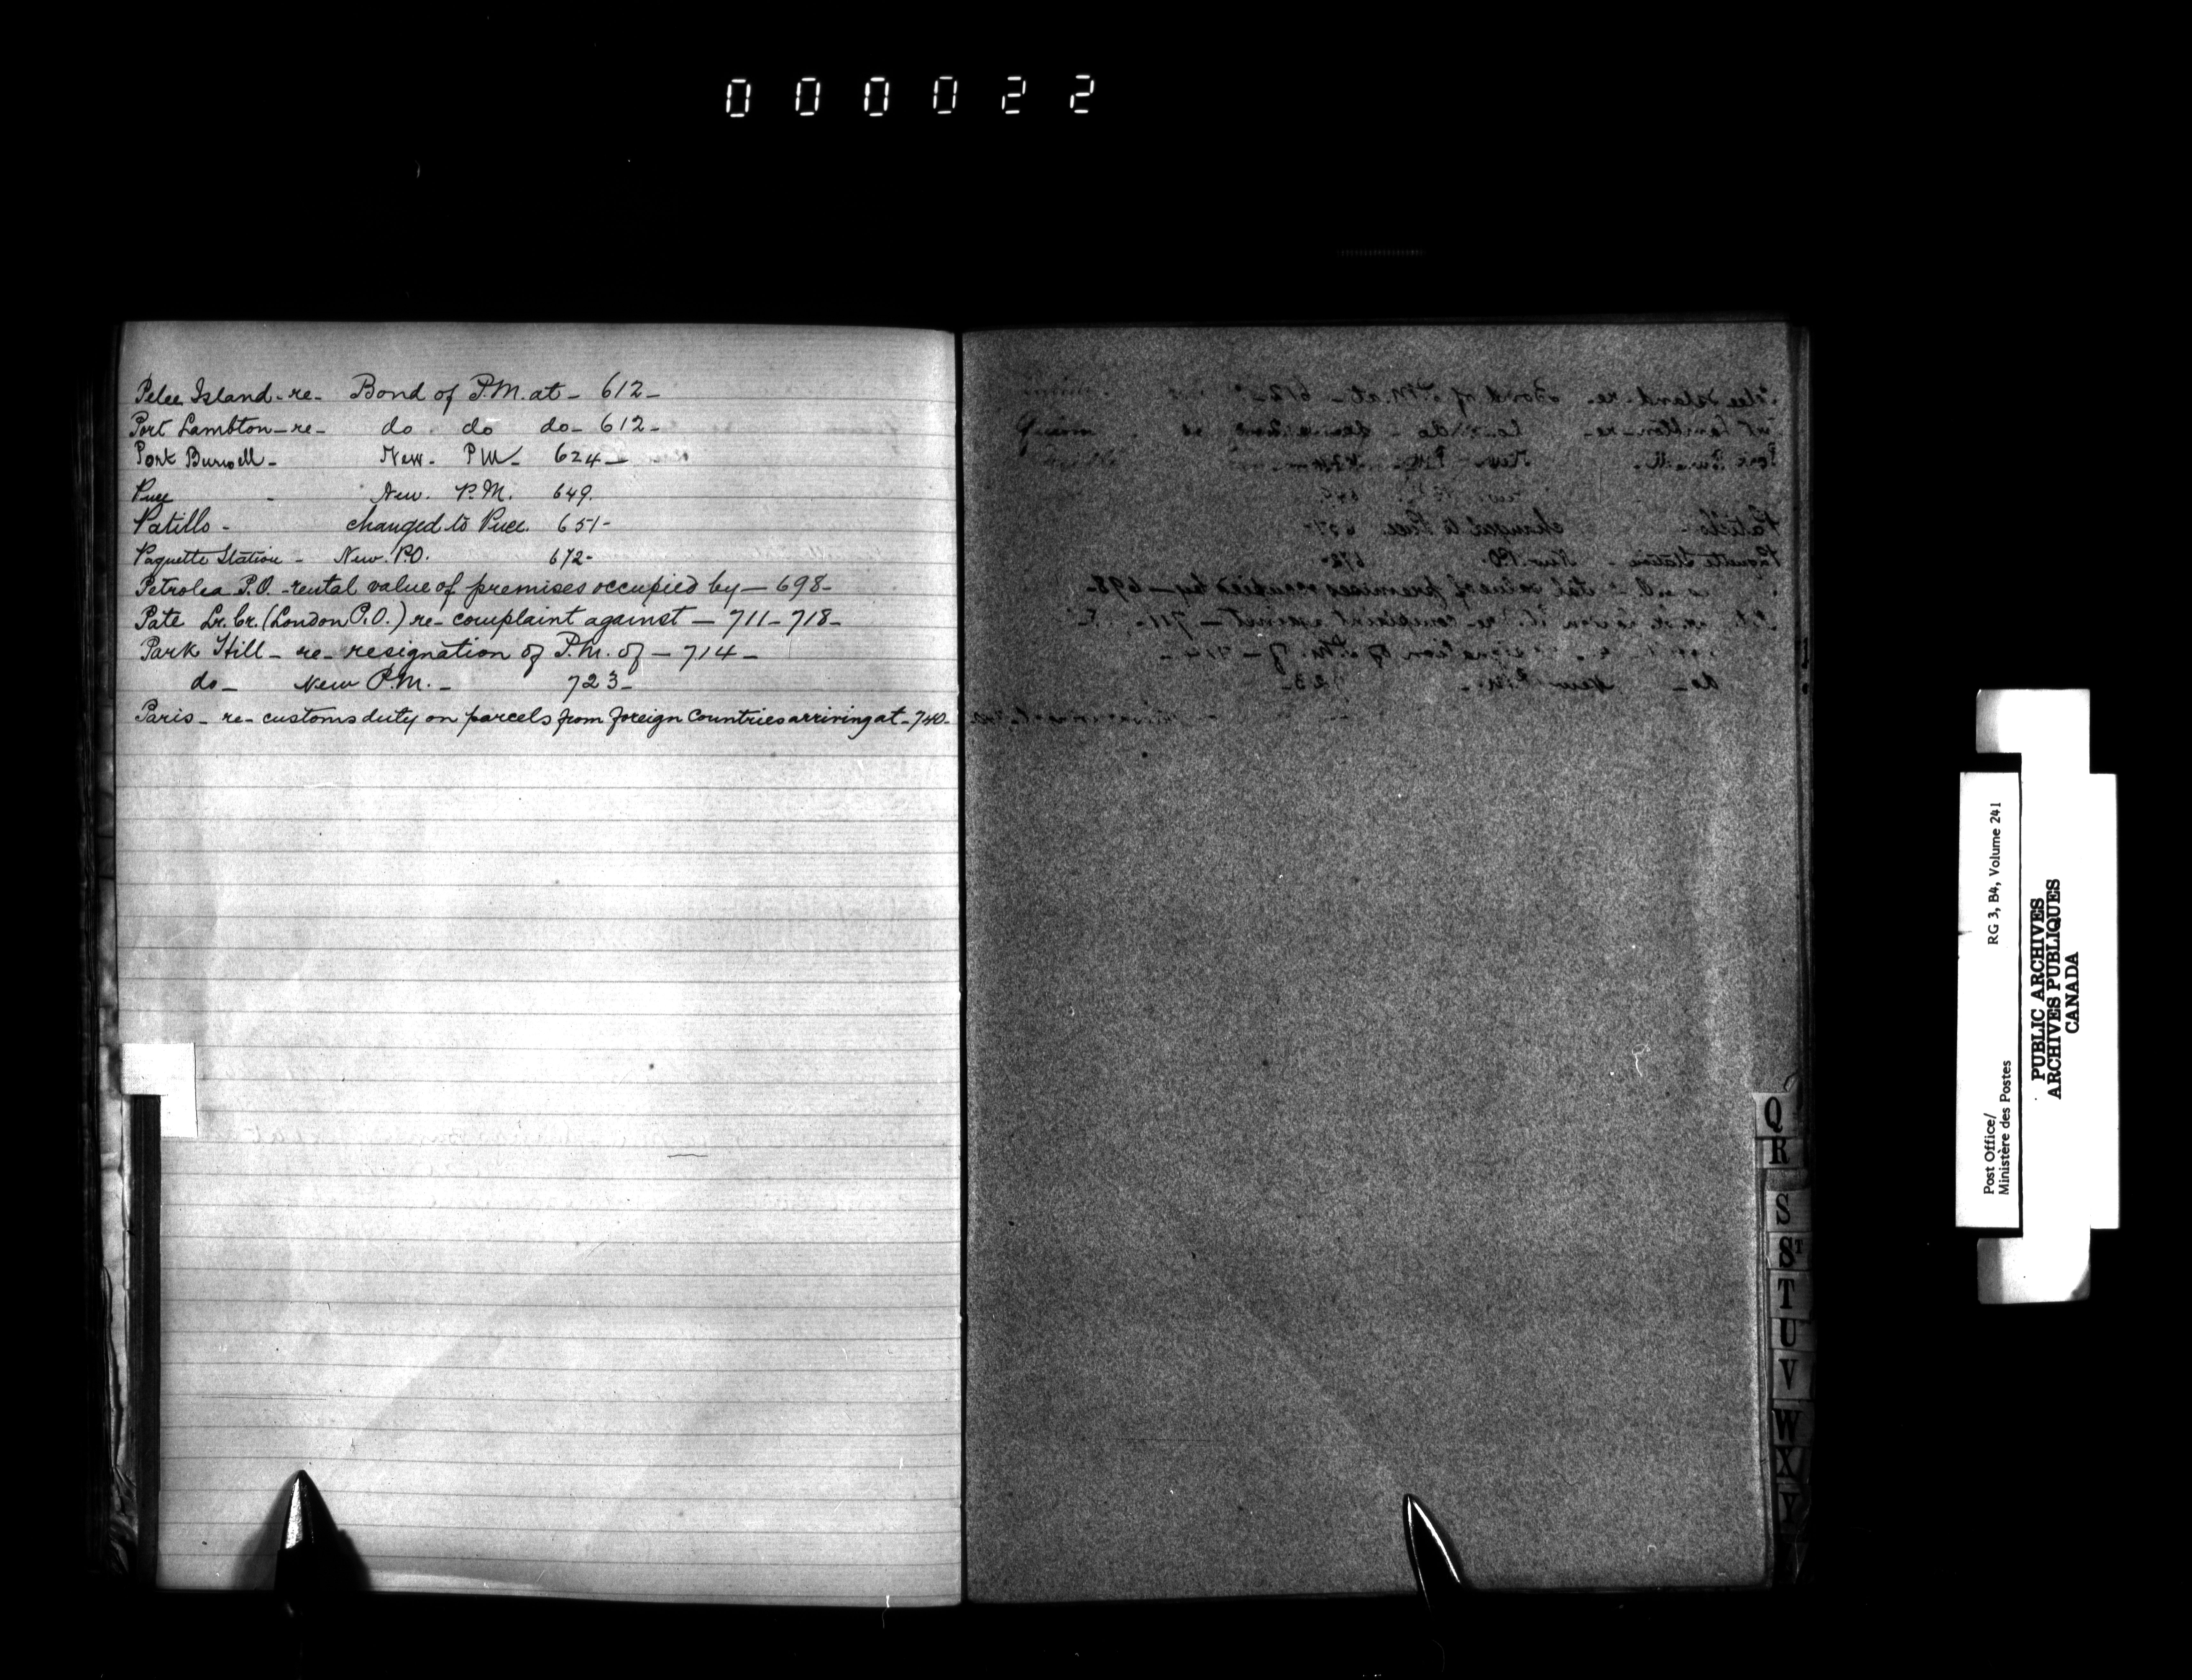 000022
Pelee Island - re - Bond of P.M. at - 612 -
Port Lambton - re - do do do - 612 -
Port Burwell - New - P.M - 624 -
Puce - New. P.M. 649.
Patillo - changed to Puce. 651 -
Paquette Station - New. P.O. 672 -
Petrolea P.O. - rental value of premises occupied by - 698 -
Pate Lr. Cr. (London P.O.) re - complaint against - 711 - 718 -
Park Hill - re - resignation of P.M. of - 714 -
do - New P.M. - 723 -
Paris - re - customs duty on parcels from foreign Countries arriving at - 740 -
Q
R
S
ST
T
U
V
W
X
Y
Post Office/
Ministère des Postes
RG 3, B4, Volume 241
PUBLIC ARCHIVES
ARCHIVES PUBLIQUES
CANADA